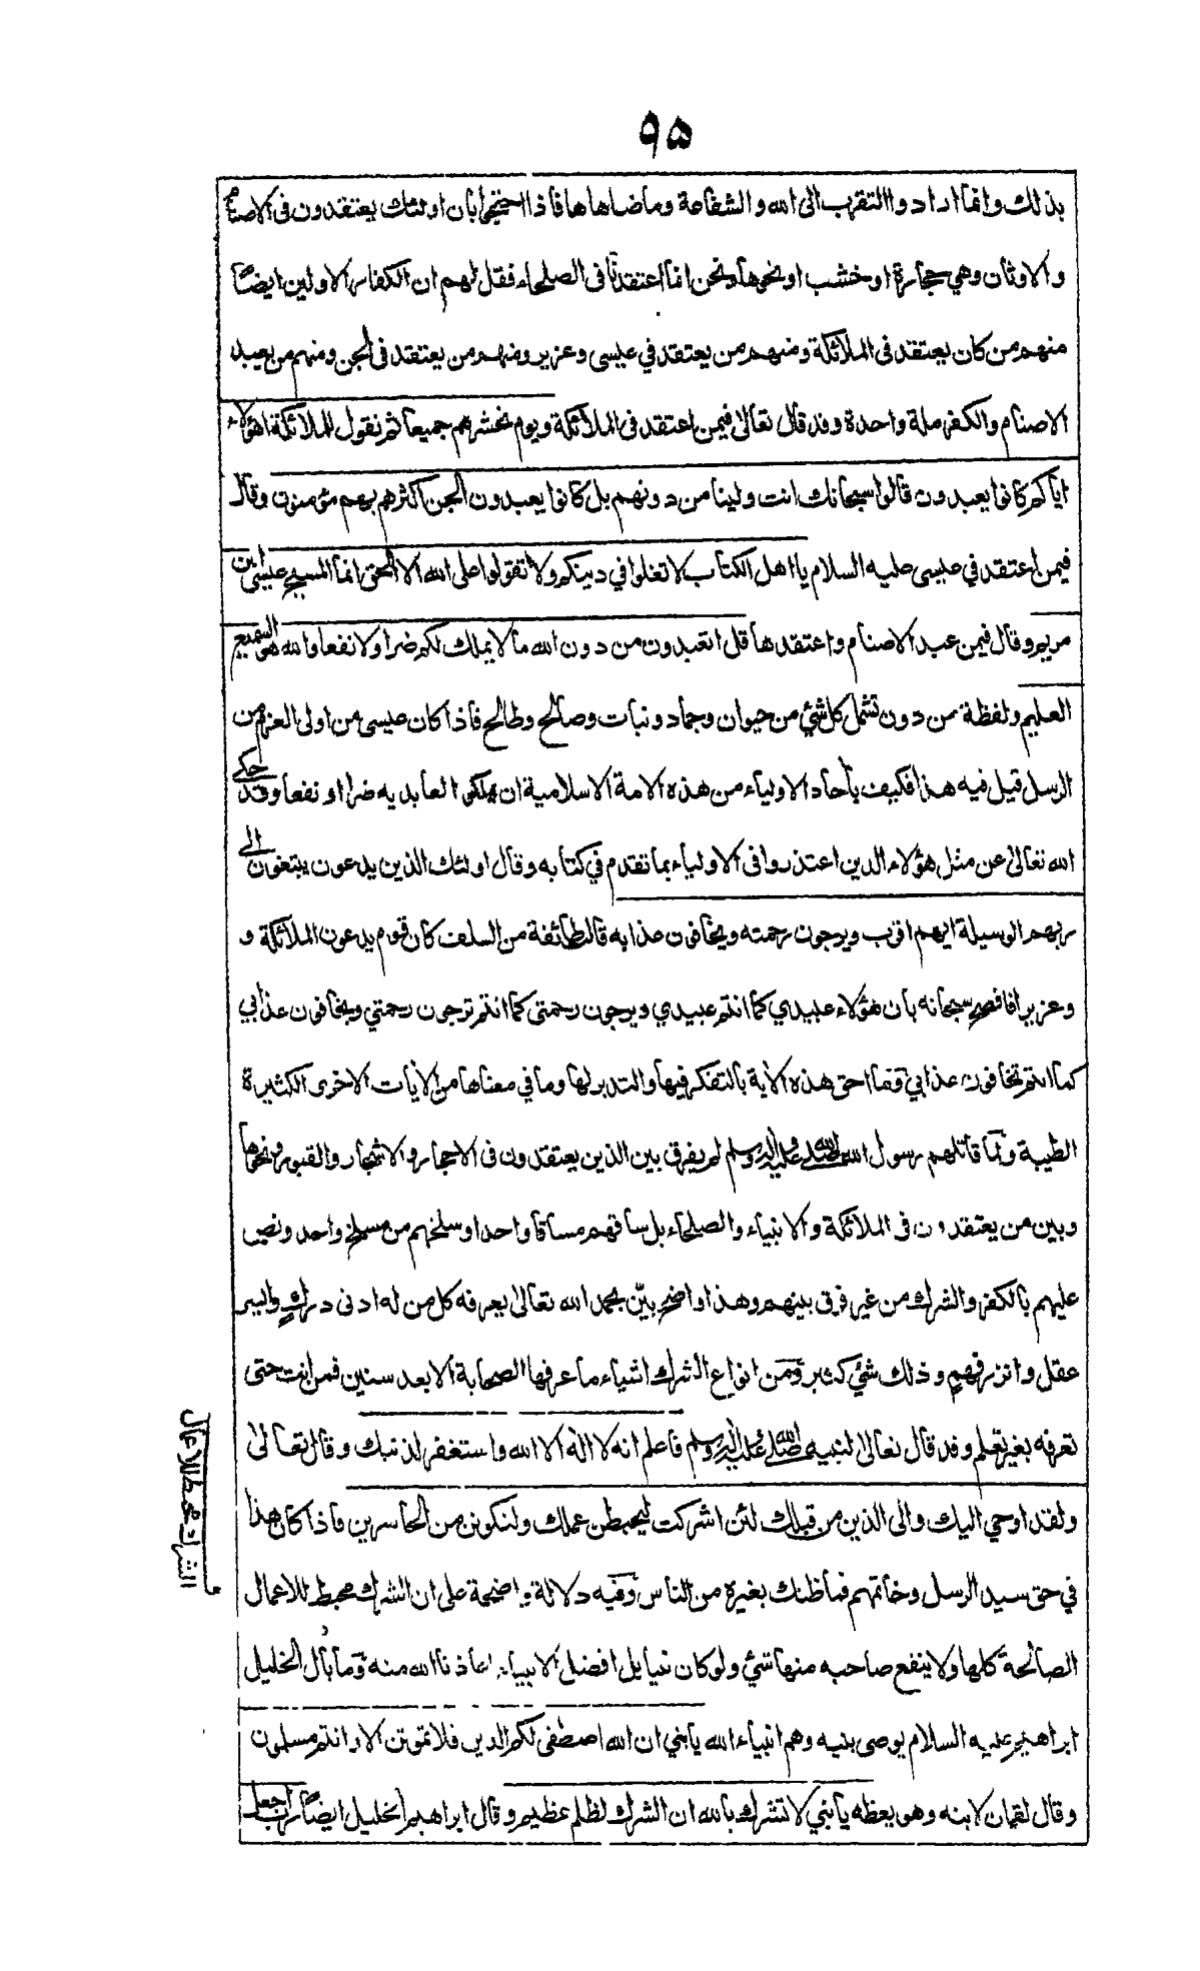 ٩٥
بذلك وانما ارادوا التقرب الى الله والشفاعة وما ضاهاها فاذا احتجوا بان اولئك يعتقدون فى الاصنام
والاوثان وهي حجارة او خشب او نحوها ونحن انما اعتقدنا فى الصلحاء فقل لهم ان الكفار الاولين ايضًا
منهم من كان يعتقد فى الملائكة ومنهم من يعتقد في عيسى وعزير ومنهم من يعتقد فى الجن ومنهم من يعبد
الاصنام والكفر ملة واحدة وقد قال تعالى فيمن اعتقد فى الملائكة ويوم نحشرهم جميعا ثم نقول للملائكة اهؤلاء
اياكم كانوا يعبدون قالوا سبحانك انت ولينا من دونهم بل كانوا يعبدون الجن اكثرهم بهم مؤمنون وقال
فيمن اعتقد في عيسى عليه السلام يا اهل الكتاب لا تغلوا في دينكم ولا تقولوا على الله الا الحق انما المسيح عيسى ابن
مريم وقال فيمن عبد الاصنام واعتقدها قل اتعبدون من دون الله ما لا يملك لكم ضرا ولا نفعا والله هو السميع
العليم ولفظة من دون تشمل كل شئ من حيوان وجماد ونبات وصالح وطالح فاذا كان عيسى من اولى العزم من
الرسل قيل فيه هذا فكيف بآحاد الاولياء من هذه الامة الاسلامية ان يملكوا لعابديه ضرا او نفعا وقد حكى
الله تعالى عن مثل هؤلاء الذين اعتذروا فى الاولياء بما تقدم في كتابه وقال اولئك الذين يدعون يبتغون الى
ربهم الوسيلة ايهم اقرب ويرجون رحمته ويخافون عذابه قال طائفة من السلف كان قوم يدعون الملائكة و
وعزيرا فافصح سبحانه بان هؤلاء عبيدي كما انتم عبيدي ويرجون رحمتى كما انتم ترجون رحمتي ويخافون عذابي
كما انتم تخافون عذابي فما احق هذه الآية بالتفكر فيها والتدبر لها وما في معناها من الآيات الاخرى الكثيرة
الطيبة ولما قاتلهم رسول الله صلى الله عليه واله وسلم لم يفرق بين الذين يعتقدون فى الاحجار والاشجار والقبور ونحوها
وبين من يعتقدون فى الملائكة والانبياء والصلحاء بل ساقهم مساقا واحدا وسلخهم من مسلخ واحد ونص
عليهم بالكفر والشرك من غير فرق بينهم وهذا واضح بيّن بحمد الله تعالى يعرفه كل من له ادنى درك وايسر
عقل وانزر فهم وذلك شئ كثير ومن انواع الشرك اشياء ما عرفها الصحابة الا بعد سنين فمن انت حتى
تعرفه بغير تعلم وقد قال تعالى لنبيه صلى الله عليه واله وسلم فاعلم انه لا اله الا الله واستغفر لذنبك وقال تعالى
ولقد اوحي اليك والى الذين من قبلك لئن اشركت ليحبطن عملك ولتكونن من الخاسرين فاذا كان هذا
في حق سيد الرسل وخاتمهم فما ظنك بغيره من الناس وفيه دلالة واضحة على ان الشرك محبط للاعمال
الصالحة كلها ولا ينفع صاحبه منها شئ ولو كان نبيا بل افضل الانبياء اعاذنا الله منه وما بال الخليل
ابراهيم عليه السلام يوصى بنيه وهم انبياء الله يا بني ان الله اصطفى لكم الدين فلا تموتن الا وانتم مسلمون
وقال لقمان لابنه وهو يعظه يا بني لا تشرك بالله ان الشرك لظلم عظيم وقال ابراهيم الخليل ايضًا رب اجعل
الشرك محبط للاعمال